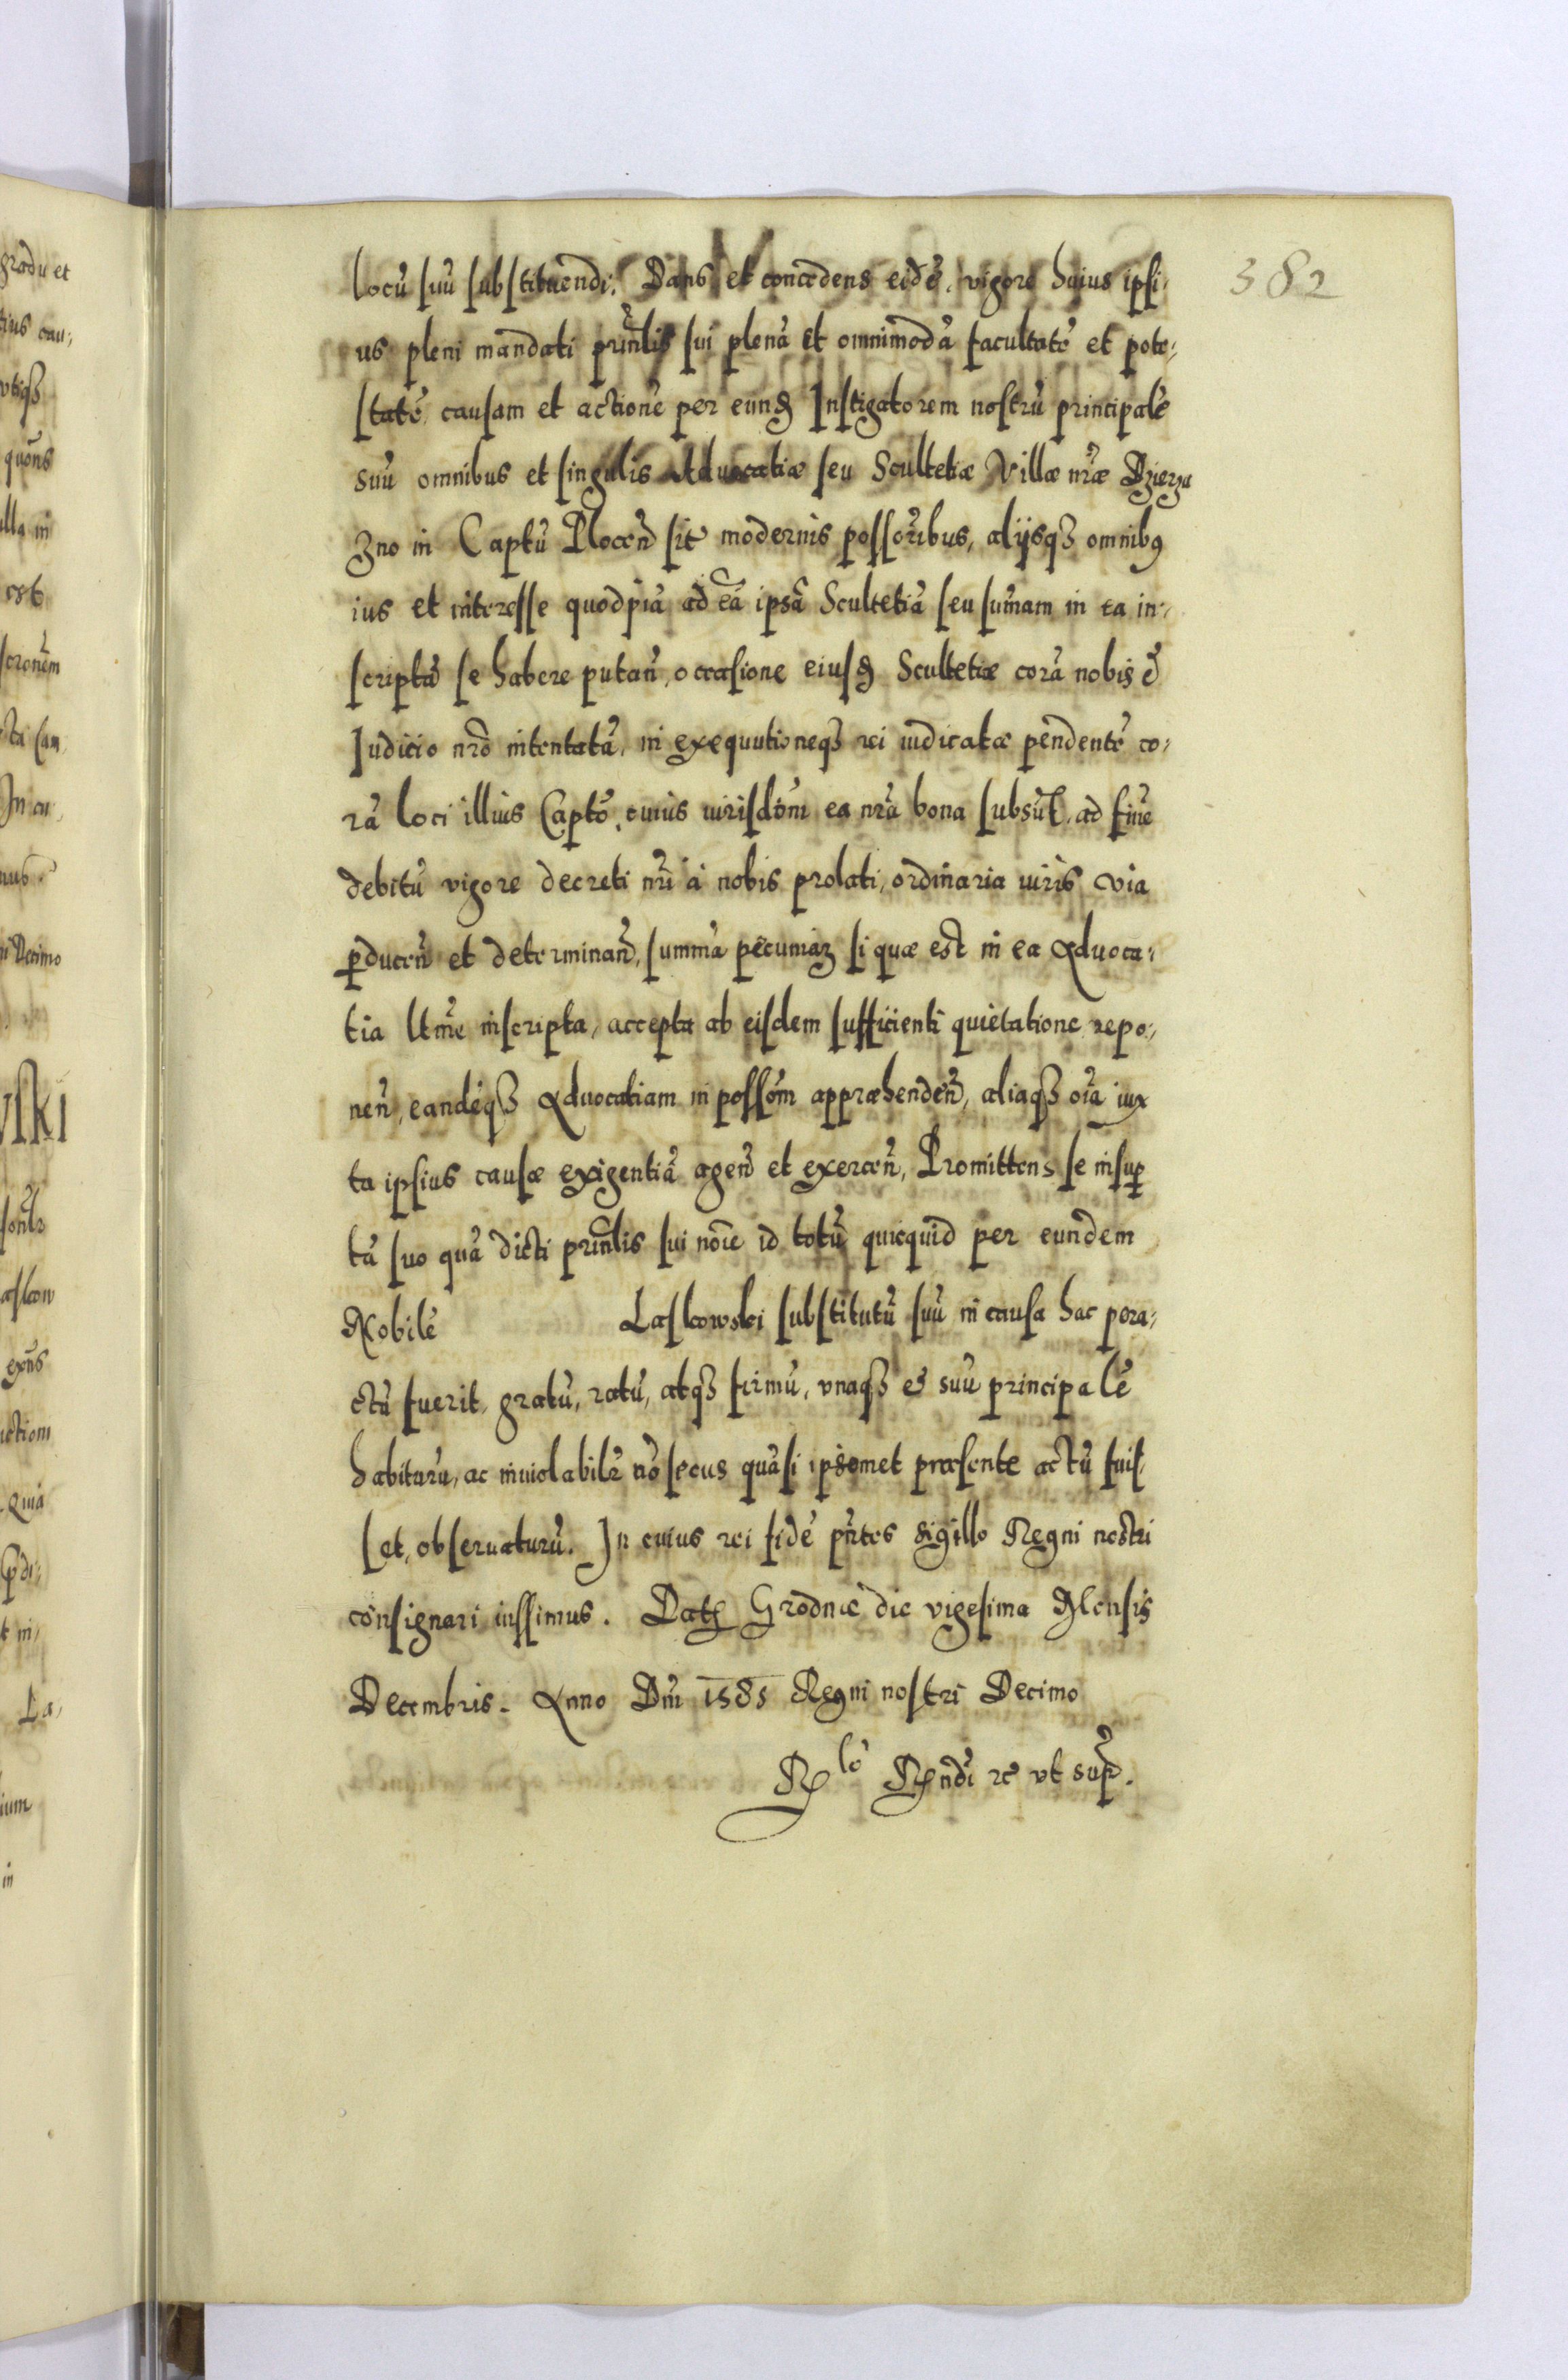 382
locū suū substituendi. Dans et concedens eidē, vigore huius ipsi,
us pleni mandati prīnlis sui plenā et omnimodā facultatē et pote,
statē, causam et actionē per eund. Instigatorem nostrū principalē
suū omnibus et singulis Advocatiæ seu Scultetiæ Villæ nræ Dzierza
zno in Captū Plocen̄ sit̄ modernis possoribus, alijsq₃ omnibꝯ
ius et interesse quodpiā ad eā ipsā Scultetiā seu sum̄am in ea in,
scriptā se habere putan̄, occasione eiusd. Scultetiæ corā nobis ē
Iudicio nrō intentatā, in exequutioneq₃ rei iudicatæ pendentē co,
rā loci illius Captō, cuius iurisdōni ea nrā bona subsūt, ad finē
debitū vigore decreti nrī à nobis prolati, ordinaria iuris via
ꝑducen̄ et determinan̄, summā pecuniaꝝ si quæ est in ea Advoca,
tia ltm̄e inscripta, accepta ab eisdem sufficienti quietatione repo,
nen̄, eandēq₃ Advocatiam in possōm appræhendēn̄, aliaq₃ oīa iux
ta ipsius causæ exigentiā agen̄ et exercen̄, Promittens se insuꝑ
tā suo quā dicti prīnlis sui noīe id totū quicquid per eundem
Nobilē Laskowski substitutū suū in causa hac pera,
ctū fuerit, gratū, ratū, atq₃ firmū, unaq₃ & suū principalē
habiturū, ac inviolabilr̄ nō secus quāsi ipsomet præsente actū fuis,
set, observaturū. In cuius rei fidē pn̄tes sigillo Regni nostri
consignari iussimus. Dat. Grodnæ die vigesima Mensis
Decembris. Anno Dnī 1585 Regni nostri Decimo
R̄lō R̄ndi rc̄ ut sup̄.
gradu et
tius cau,
utiq₃
quōns
illa in
est
scronēm
In cu,
nus
ni Decimo
exn̄s
actiom
Quia
t in,
La,
ium
in